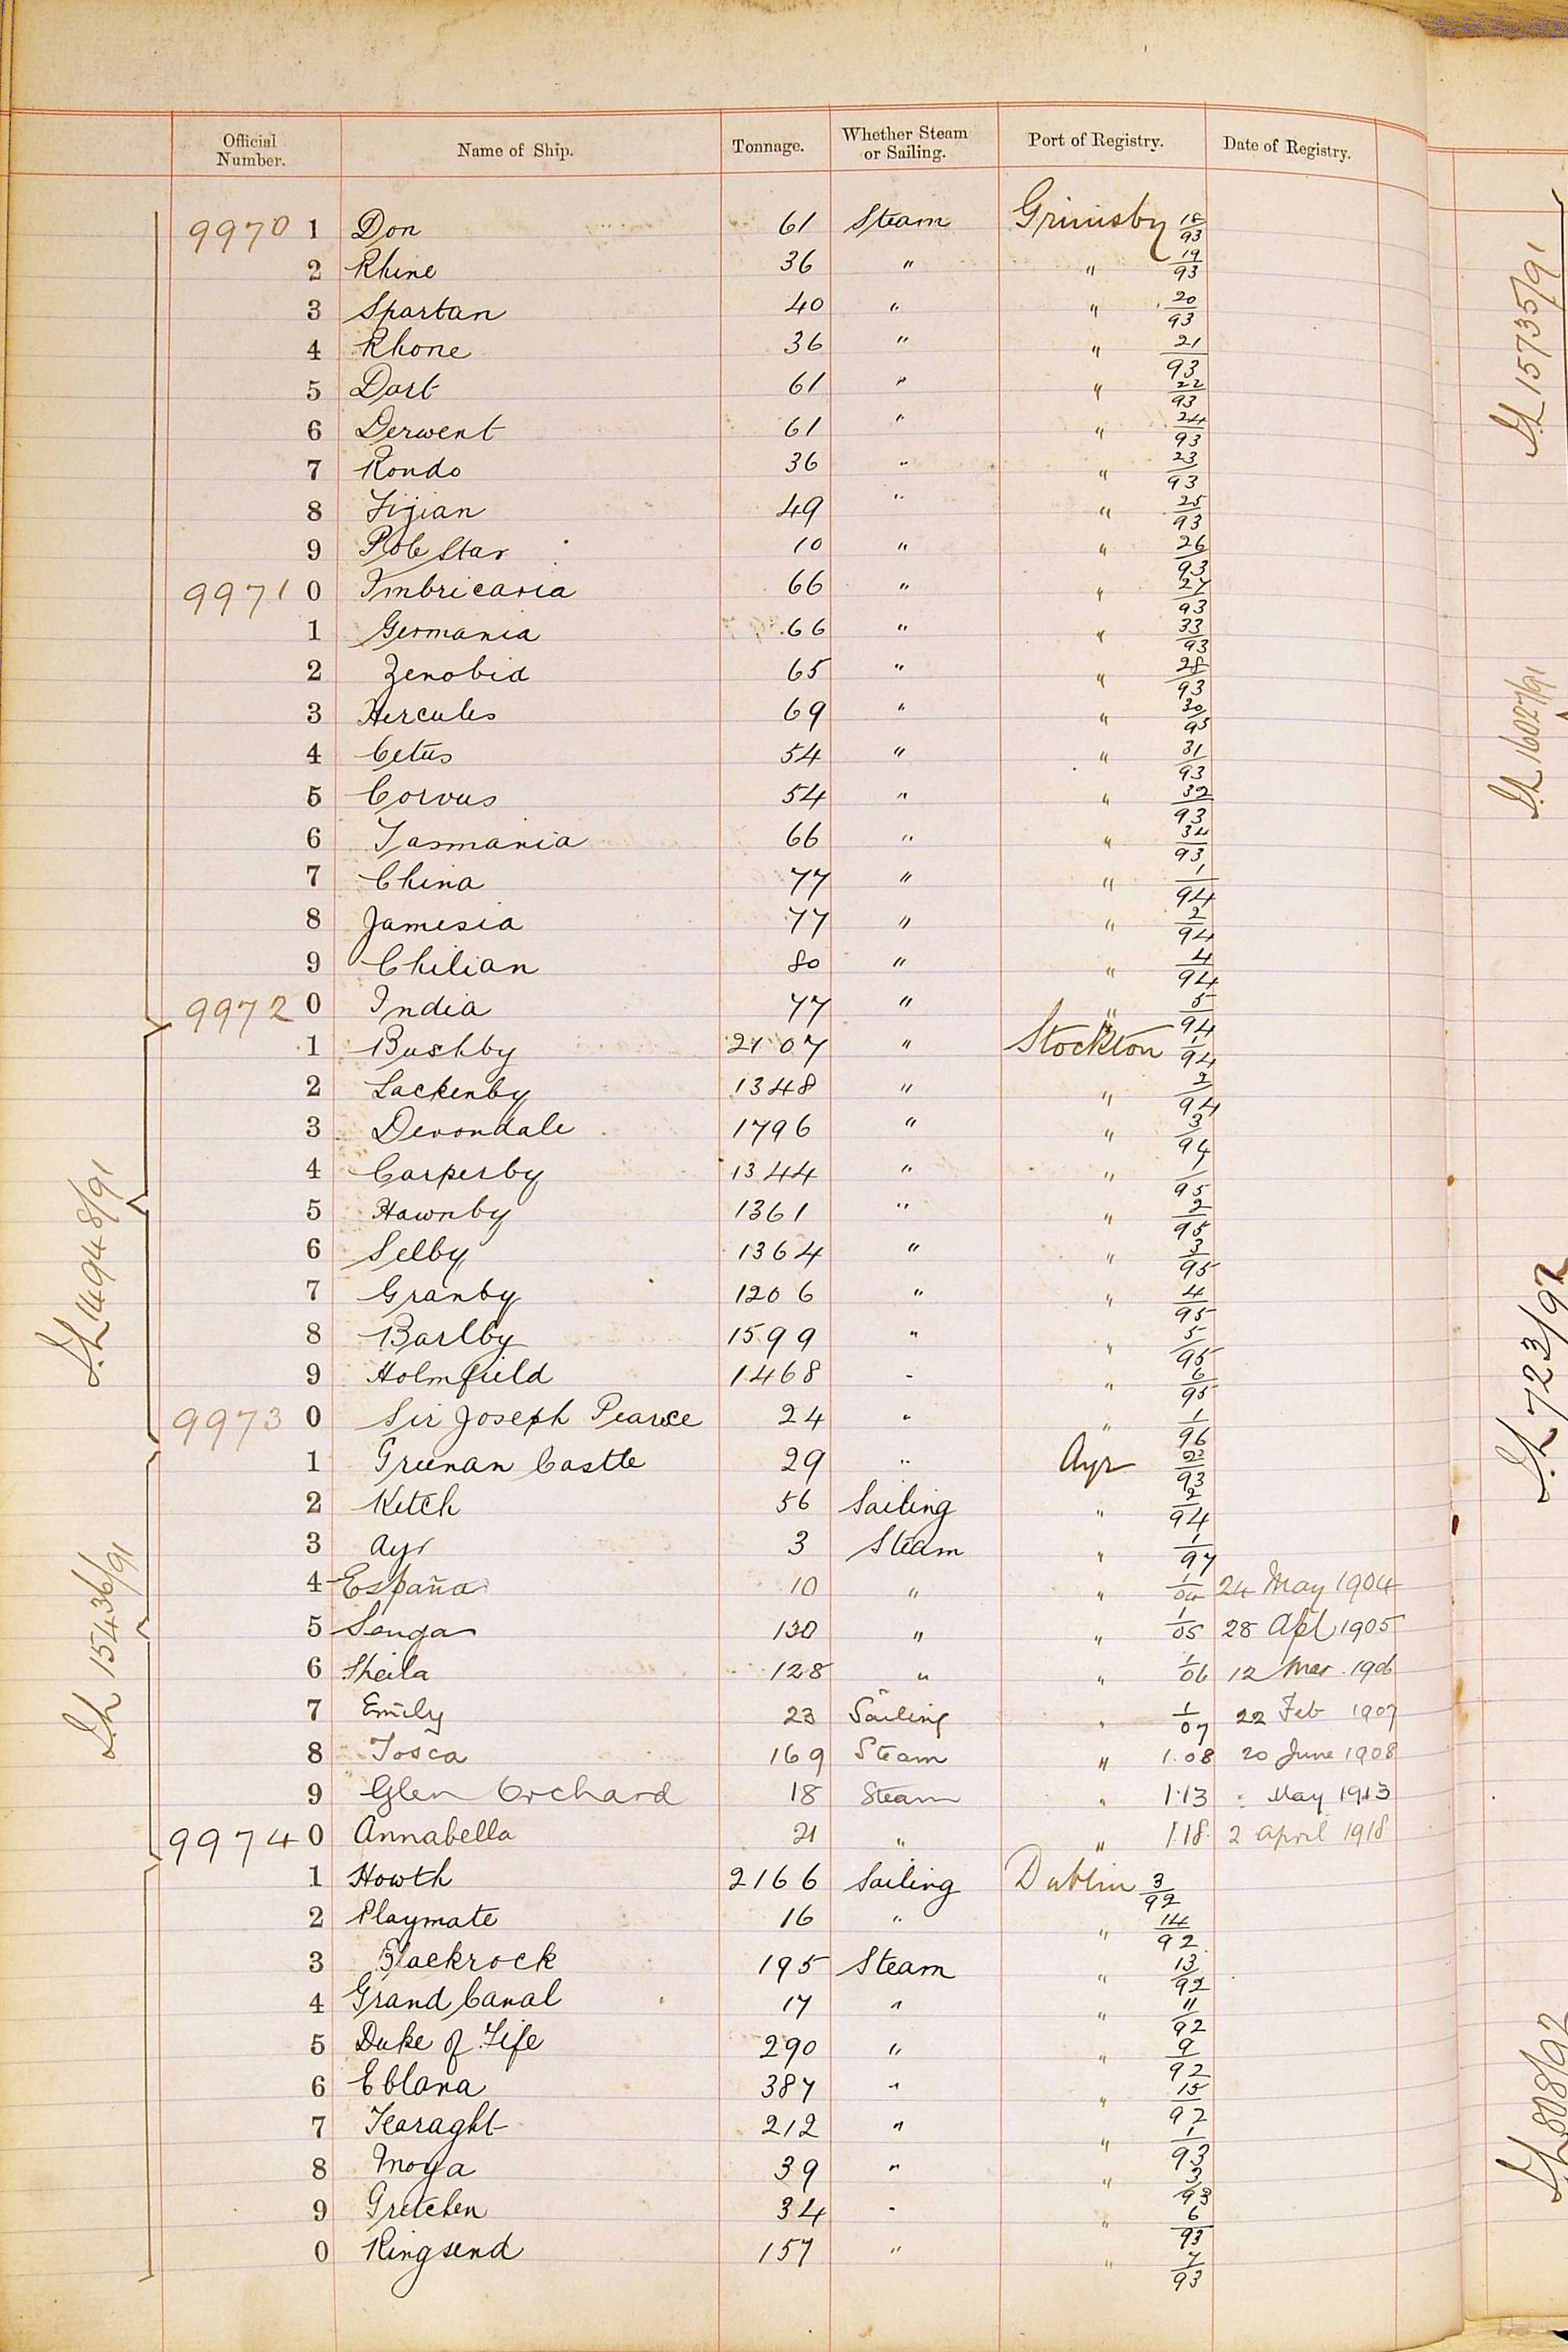 Official Number. Name of Ship. Tonnage. Whether Steam or Sailing. Port of Registry. Date of Registry.
9970 1 Don 61 Steam Grimsby 18/93
2 Rhine 36 " " 19/93
3 Spartan 40 " " 20/93
4 Rhone 36 " " 21/93
5 Dart 61 " " 22/93
6 Derwent 61 " " 24/93
7 Rondo 36 " " 23/93
8 Fijian 49 " " 25/93
9 Pole Star 10 " " 26/93
9971 0 Imbricaria 66 " " 27/93
1 Germania 66 " " 33/93
2 Zenobia 65 " " 28/93
3 Hercules 69 " " 30/93
4 Cetus 54 " " 31/93
5 Corvus 54 " " 32/93
6 Tasmania 66 " " 34/93
7 China 77 " " 1/94
8 Jamesia 77 " " 2/94
9 Chilian 80 " " 4/94
9972 0 India 77 " " 5/94
1 Bushby 2107 " Stockton 1/94
2 Lackenby 1348 " " 2/94
3 Devondale 1796 " " 3/94
4 Carperby 1344 " " 1/95
5 Hawnby 1361 " " 2/95
6 Selby 1364 " " 3/95
7 Granby 1206 " " 4/95
8 Barlby 1599 " " 5/95
9 Holmfield 1468 " " 6/95
9973 0 Sir Joseph Pearce 24 " " 1/96
1 Greenan Castle 29 " Ayr 2/93
2 Ketch 56 Sailing " 2/94
3 Ayr 3 Steam " 1/97
4 España 10 " " 1/04 24 May 1904
5 Senga 130 " " 1/05 28 Apl 1905
6 Sheila 128 " " 1/06 12 Mar. 1906
7 Emily 23 Sailing " 1/07 22 Feb 1907
8 Tosca 169 Steam " 1.08 20 June 1908
9 Glen Orchard 18 Steam " 1.13 May 1913
9974 0 Annabella 21 " " 1.18. 2 April 1918
1 Howth 2166 Sailing Dublin 3/92
2 Playmate 16 " " 14/92
3 Blackrock 195 Steam " 13/92
4 Grand Canal 17 " " 11/92
5 Duke of Fife 290 " " 9/92
6 Eblana 387 " " 15/92
7 Tearaght 212 " " 1/93
8 Moya 39 " " 3/93
9 Gretchen 34 " " 6/93
0 Ringsend 157 " " 7/93
14948/91
15436/91
15735/91
16027/91
723/92
808/92